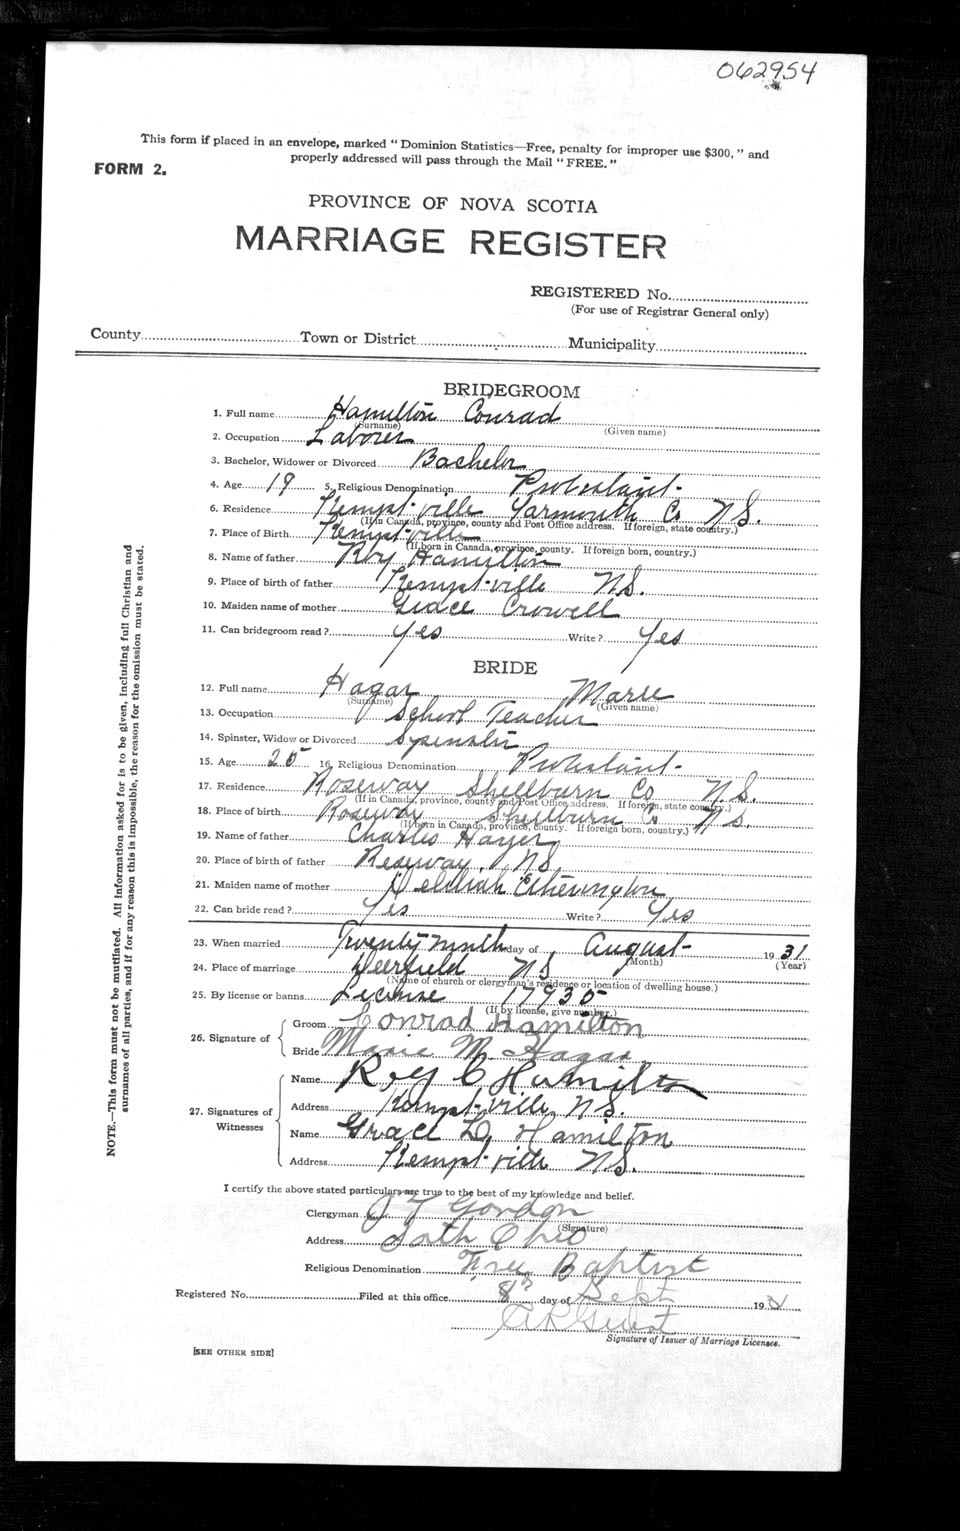 062954
This form if placed in an envelope, marked "Dominion Statistics—Free, penalty for improper use $300," and
properly addressed will pass through the Mail "FREE."
FORM 2.
PROVINCE OF NOVA SCOTIA
MARRIAGE REGISTER
REGISTERED No.
(For use of Registrar General only)
County Town or District Municipality
BRIDEGROOM
1. Full name Hamilton Conrad
(Surname) (Given name)
2. Occupation Laborer
3. Bachelor, Widower or Divorced Bachelor
4. Age 19 5. Religious Denomination Protestant
6. Residence Kempt-ville Yarmouth Co N.S.
(If in Canada, province, county and Post Office address. If foreign, state country.)
7. Place of Birth Kempt-ville
(If born in Canada, province, county. If foreign born, country.)
8. Name of father Roy Hamilton
9. Place of birth of father Kempt-ville N.S.
10. Maiden name of mother Grace Crowell
11. Can bridegroom read? Yes Write? Yes
BRIDE
12. Full name Hagar Marie
(Surname) (Given name)
13. Occupation School Teacher
14. Spinster, Widow or Divorced Spinster
15. Age 20 16. Religious Denomination Protestant
17. Residence Roseway Shelburn Co N.S.
(If in Canada, province, county and Post Office address. If foreign, state country.)
18. Place of birth Roseway Shelburn Co N.S.
(If born in Canada, province, county. If foreign born, country.)
19. Name of father Charles Hager
20. Place of birth of father Roseway N.S.
21. Maiden name of mother Etherington
22. Can bride read? Yes Write? Yes
23. When married Twenty ninth day of August 1931
(Month) (Year)
24. Place of marriage Deerfield N.S.
(Name of church or clergyman's residence or location of dwelling house.)
25. By license or banns License 17935
(If by license, give number.)
26. Signature of
Groom Conrad Hamilton
Bride Marie M. Hagar
27. Signatures of Witnesses
Name Roy C Hamilton
Address Kempt-ville N.S.
Name Grace D Hamilton
Address Kempt-ville N.S.
I certify the above stated particulars are true to the best of my knowledge and belief.
Clergyman Gordon
(Signature)
Address South Ohio
Religious Denomination Free Baptist
Registered No. Filed at this office 8th day of Sept 1931
Signature of Issuer of Marriage Licenses.
[SEE OTHER SIDE]
NOTE.—This form must not be mutilated. All information asked for is to be given, including full Christian and
surnames of all parties, and if for any reason this is impossible, the reason for the omission must be stated.